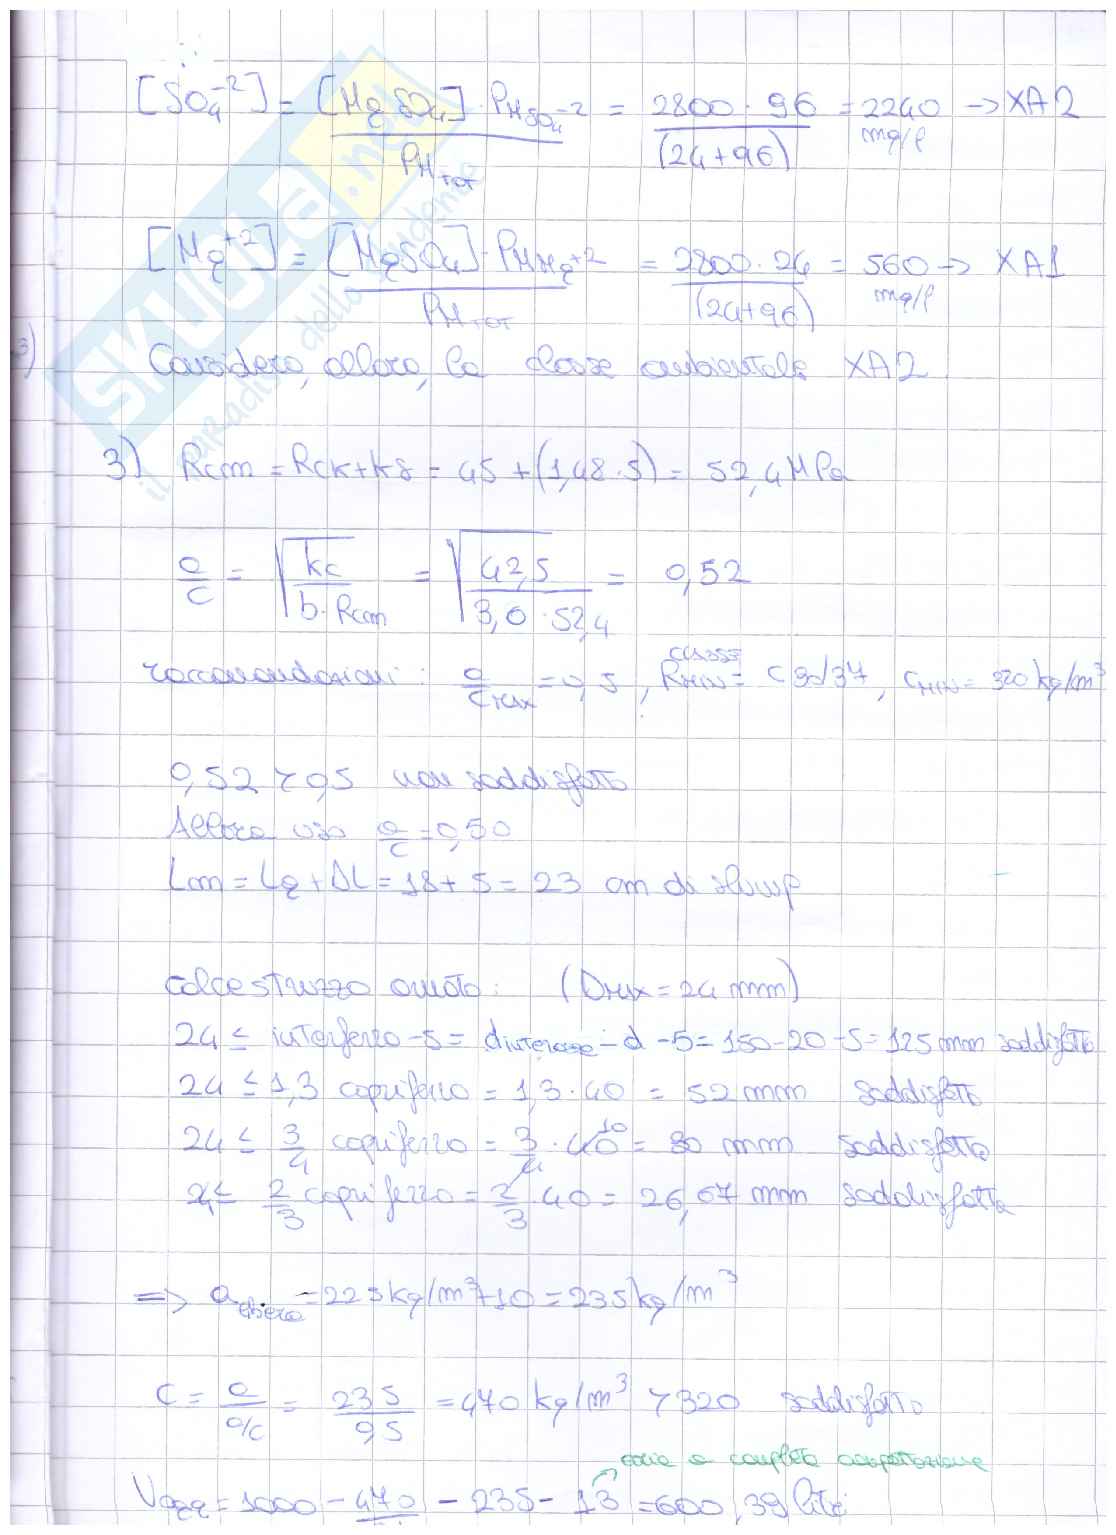 [SO₄⁻²] = [MgSO₄] · PM SO₄⁻² / PM TOT = 2800 · 96 / (24+96) = 2240 mg/l → XA2
[Mg⁺²] = [MgSO₄] · PM Mg⁺² / PM TOT = 2800 · 24 / (24+96) = 560 mg/l → XA1
Considero, allora, la classe ambientale XA2
3) Rcm = Rck + ks = 45 + (1,48 · 5) = 52,4 MPa
a/c = √(kc / b · Rcm) = √(42,5 / 3,0 · 52,4) = 0,52
raccomandazioni: a/c MAX = 0,5, classe R MIN = C30/37, C MIN = 320 kg/m³
0,52 > 0,5 non soddisfatto
Allora uso a/c = 0,50
Lm = Lg + ΔL = 18 + 5 = 23 cm di slump
calcestruzzo armato: (DMAX = 24 mm)
24 ≤ interferro - 5 = d interasse - d - 5 = 150 - 20 - 5 = 125 mm soddisfatto
24 ≤ 1,3 copriferro = 1,3 · 40 = 52 mm soddisfatto
24 ≤ 3/4 copriferro = 3/4 · 40 10 = 30 mm soddisfatto
24 ≤ 2/3 copriferro = 2/3 · 40 = 26,67 mm soddisfatta
=> a = 225 kg/m³ + 10 = 235 kg/m³
C = a / a/c = 235 / 0,5 = 470 kg/m³ > 320 soddisfatto
aria a compattazione
Vagg = 1000 - 470 - 235 - 13 = 600,39 litri
SKUOLA.net
il paradiso dello studente